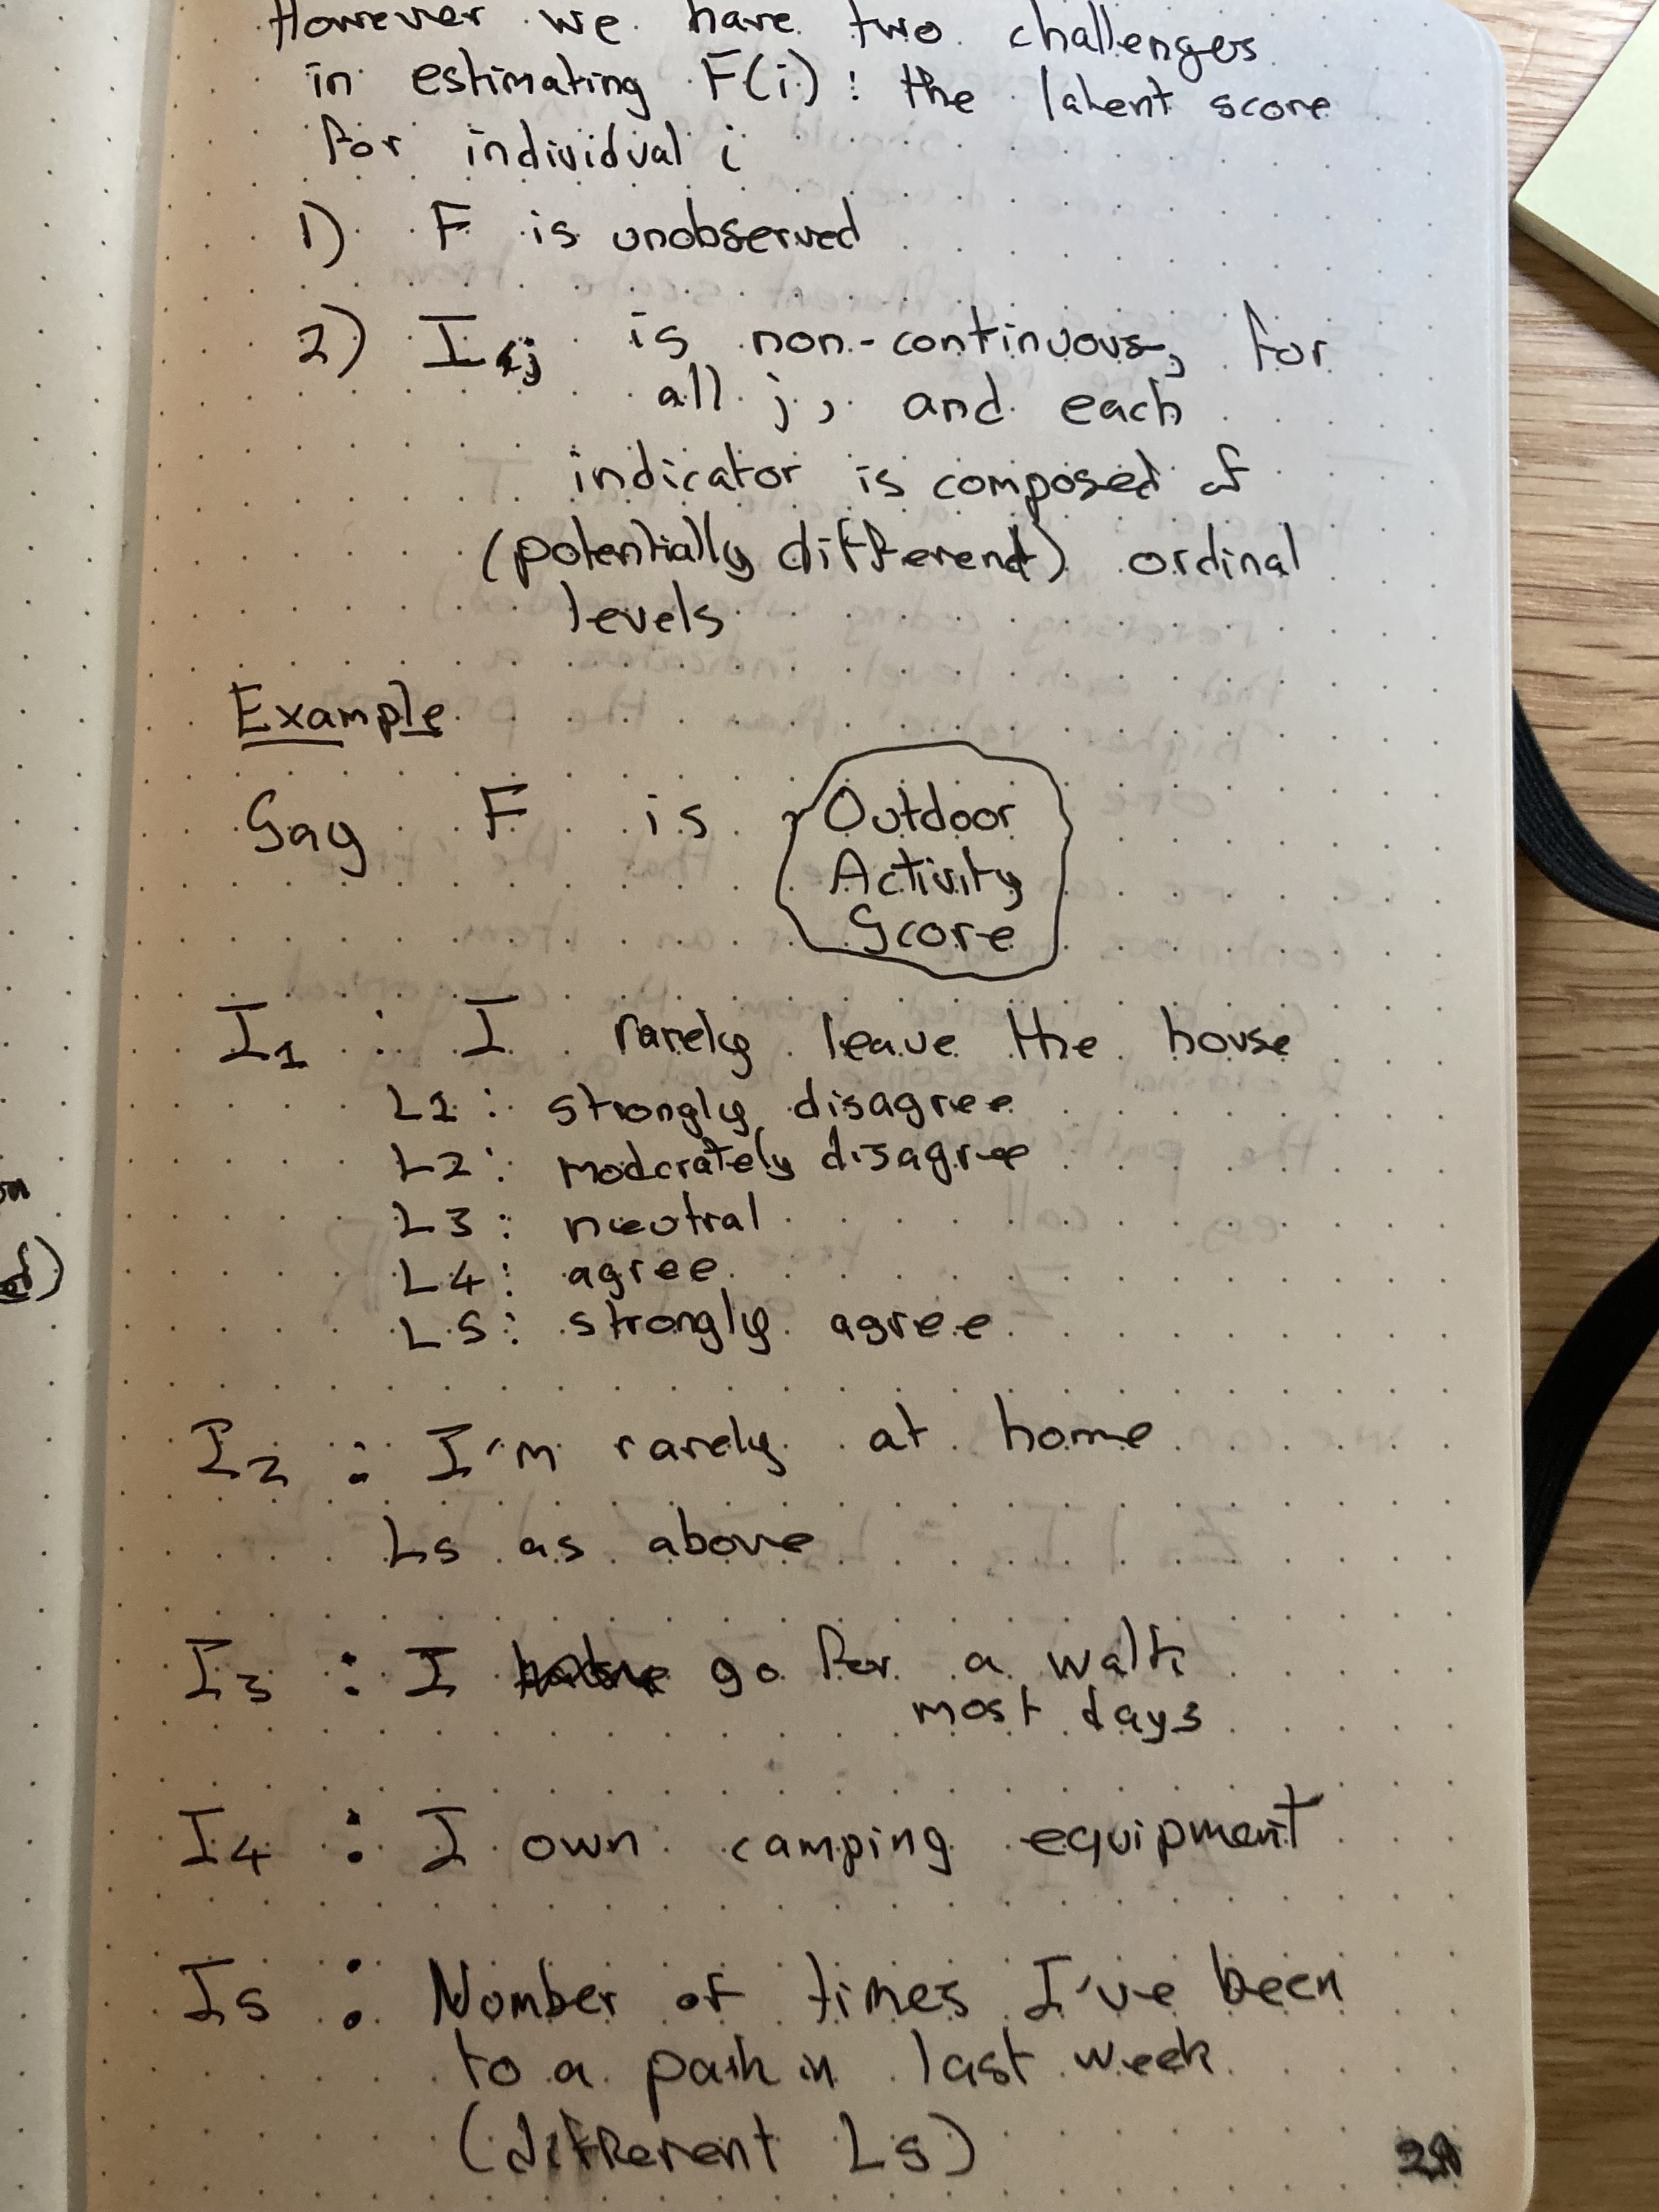 However we have two challenges
in estimating F(i): the latent score
for individual i
1) F is unobserved
2) Iij is non-continuous, for
all j, and each
indicator is composed of
(potentially different) ordinal
levels
Example
Say F is Outdoor
Activity
Score
I1 : I rarely leave the house
L1: strongly disagree
L2: moderately disagree
L3: neutral
L4: agree
L5: strongly agree
I2 : I'm rarely at home
Ls as above
I3 : I go for a walk
most days
I4 : I own camping equipment
I5 : Number of times I've been
to a park in last week
(different Ls)